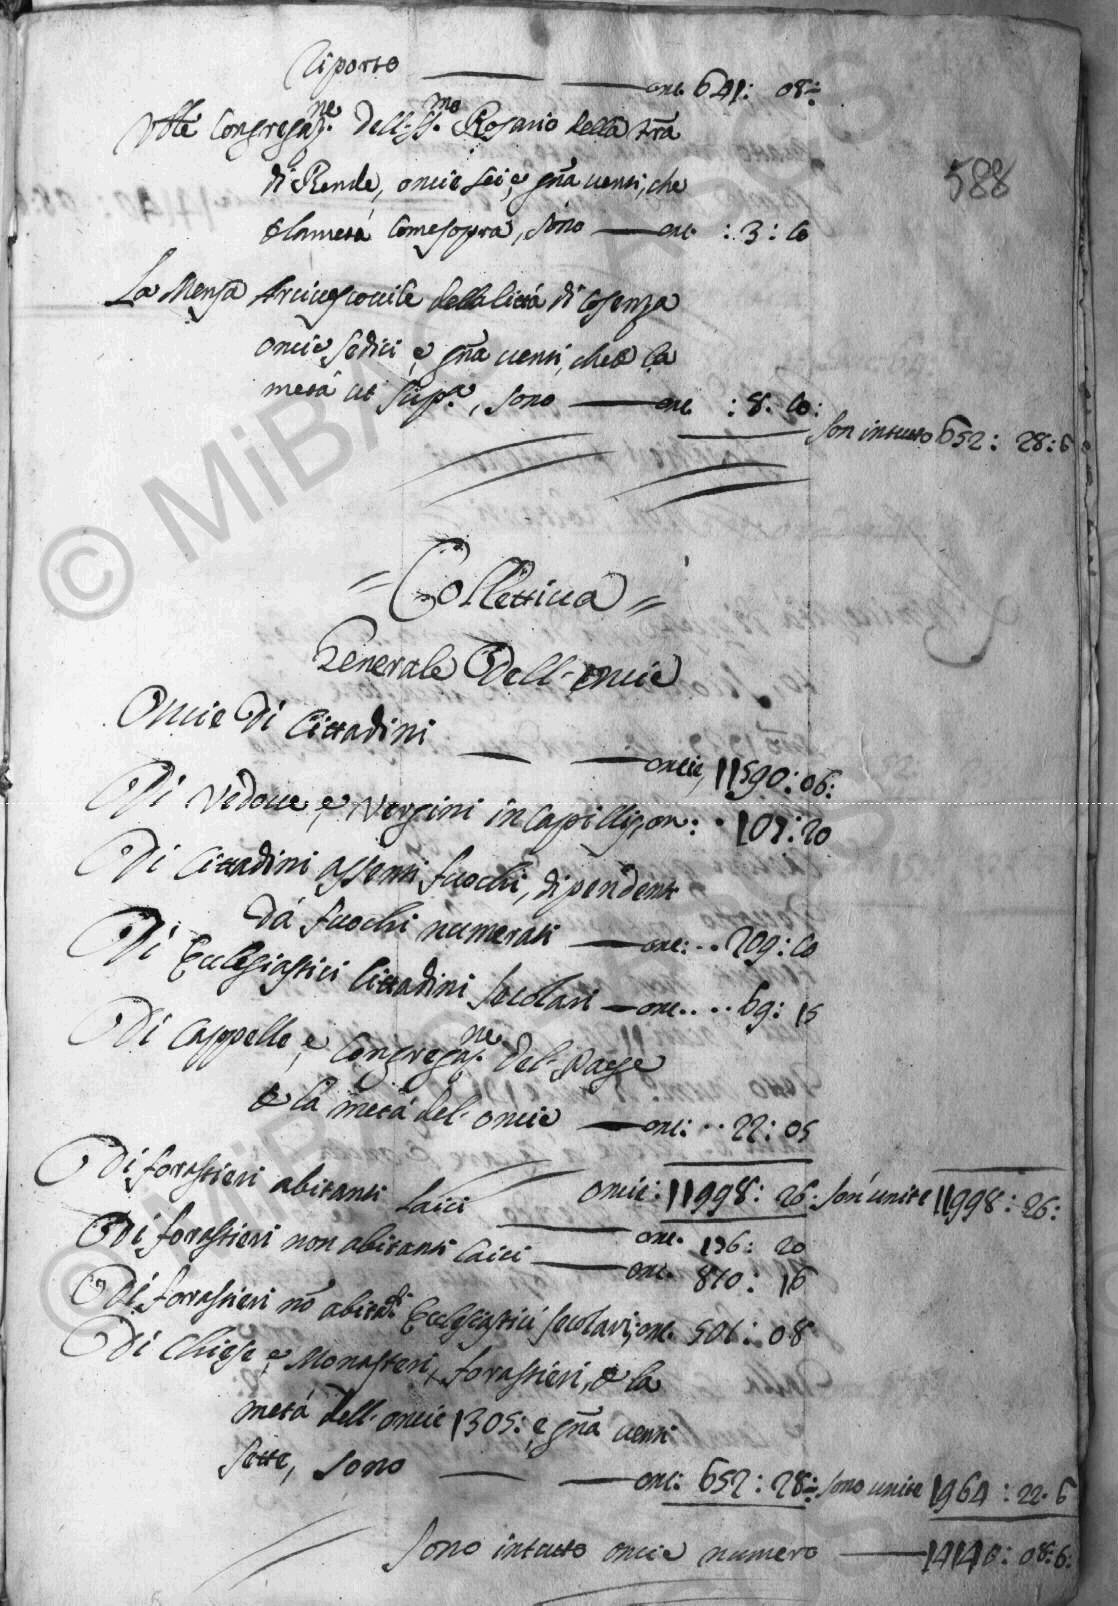 Riporto — — onc. 641: 08:
588
Vble Congregaz.ne dell SS.mo Rosario della trã
di Rende, oncie sei, e gña venti, che
è la metà come sopra, sono — onc. : 3: 10
La Mensa Arcivescovile della Città di Cosenza
oncie sedici, e gña venti, che è la
metà ut sup.a, sono — onc. : 8: 10:
Son in tutto 652: 28: 6
= Collettiva =
Generale Dell' oncie
Oncie di Cittadini — — oncie, 11590: 06:
Di Vedove, e Vergini in Capillis, on: . 107: 20
Di Cittadini assenti fuochi, dipendenti
dà fuochi numerati — onc: .. 209: 10
Di Ecclesiastici Cittadini Secolari — onc. ... 69: 15
Di Cappelle, e Congregaz.ne del Paese
è la metà del oncie — onc: .. 22: 05
oncie: 11998: 26: son' unite 11998: 26:
Di forastieri abitanti Laici — onc. 136: 20
Di forastieri non abitanti Laici — onc. 810: 16
Di forastieri nõ abitãti Ecclesiastici Secolari, onc. 501: 08
Di Chiese, e Monasteri, forastieri, è la
metà dell' oncie 1305: e gña venti
sette, sono — — onc: 652: 28: sono unite 1964: 22: 6
Sono in tutto oncie numero — 14140: 08: 6:
© MiBAC
© MiBAC